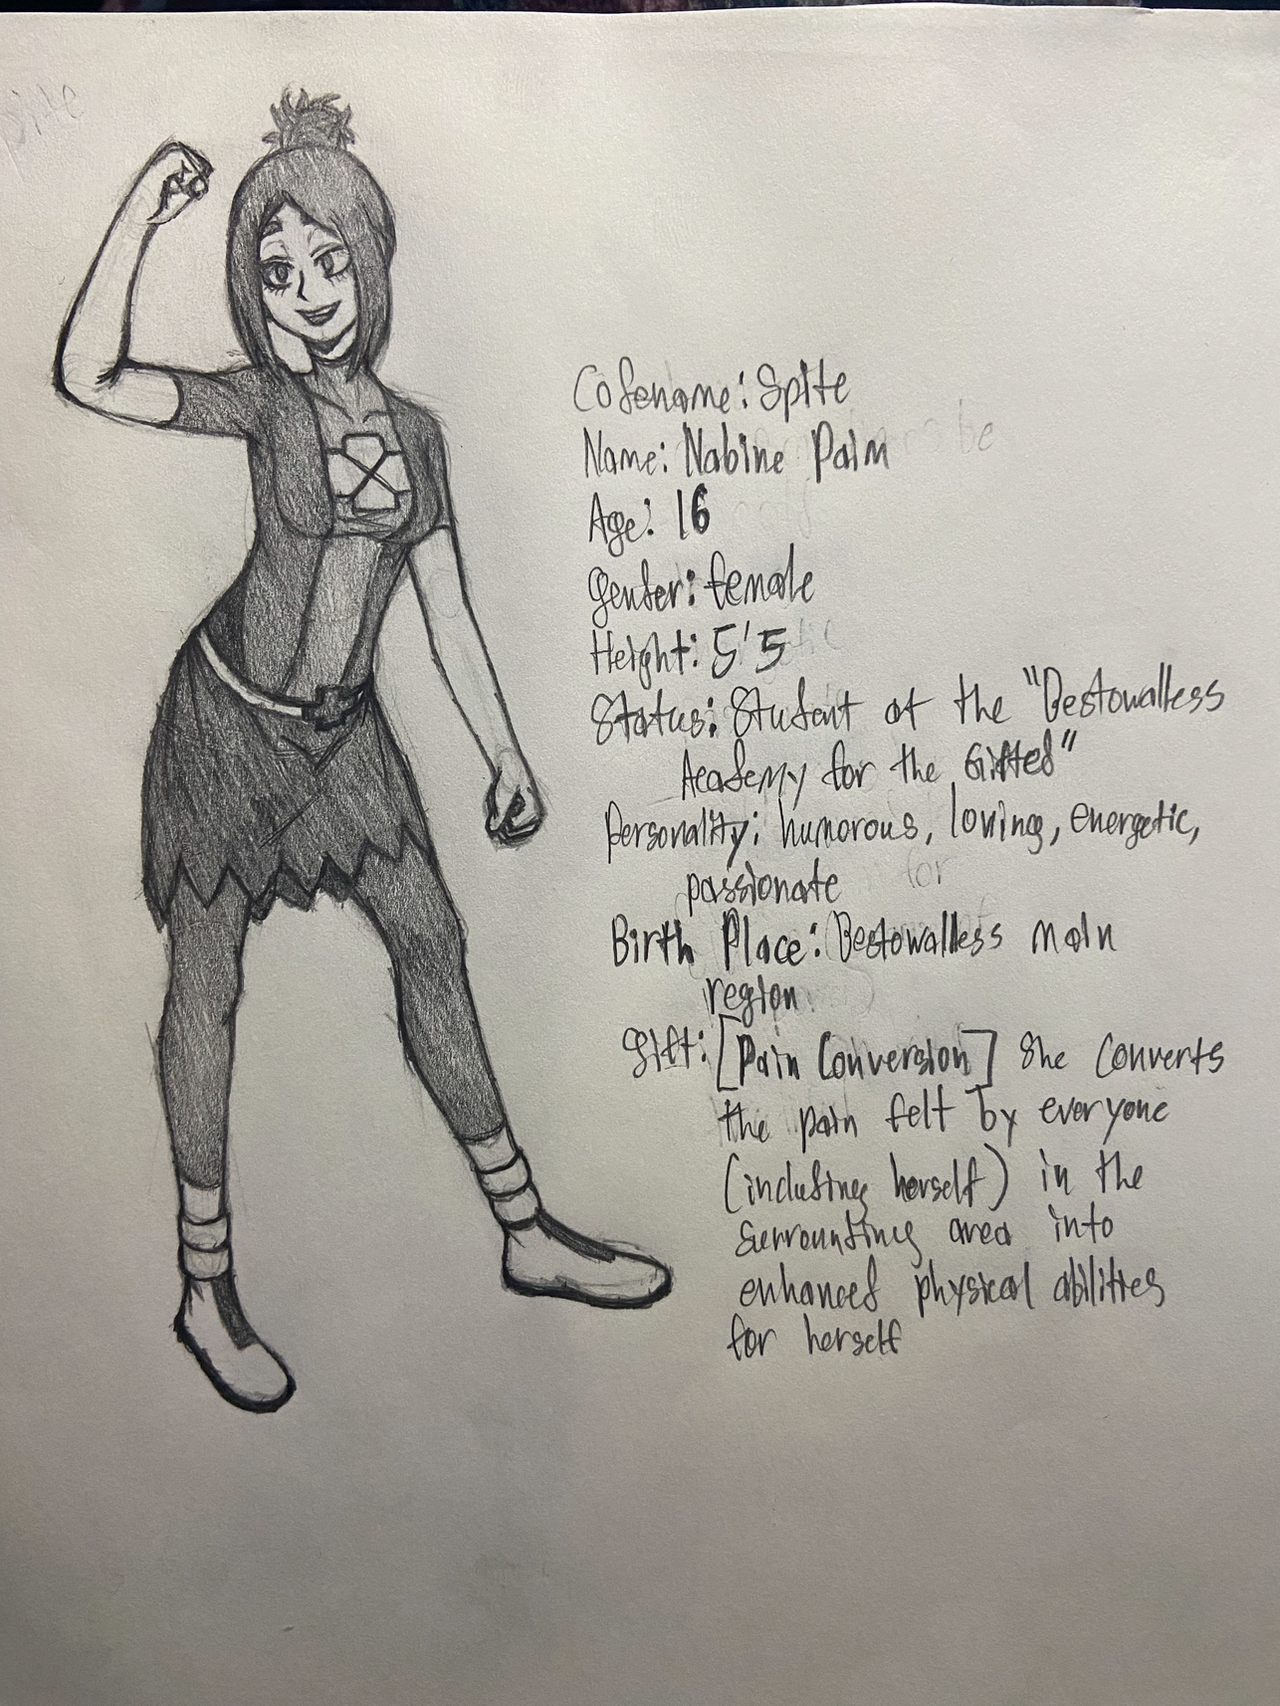 spite
Codename: Spite
Name: Nabine Palm
Age: 16
Gender: female
Height: 5'5
Status: Student at the "Bestowalless
Academy for the Gifted"
Personality: humorous, loving, energetic,
passionate
Birth Place: Bestowalless main
region
Gift: [Pain Conversion] She converts
the pain felt by everyone
(including herself) in the
surrounding area into
enhanced physical abilities
for herself